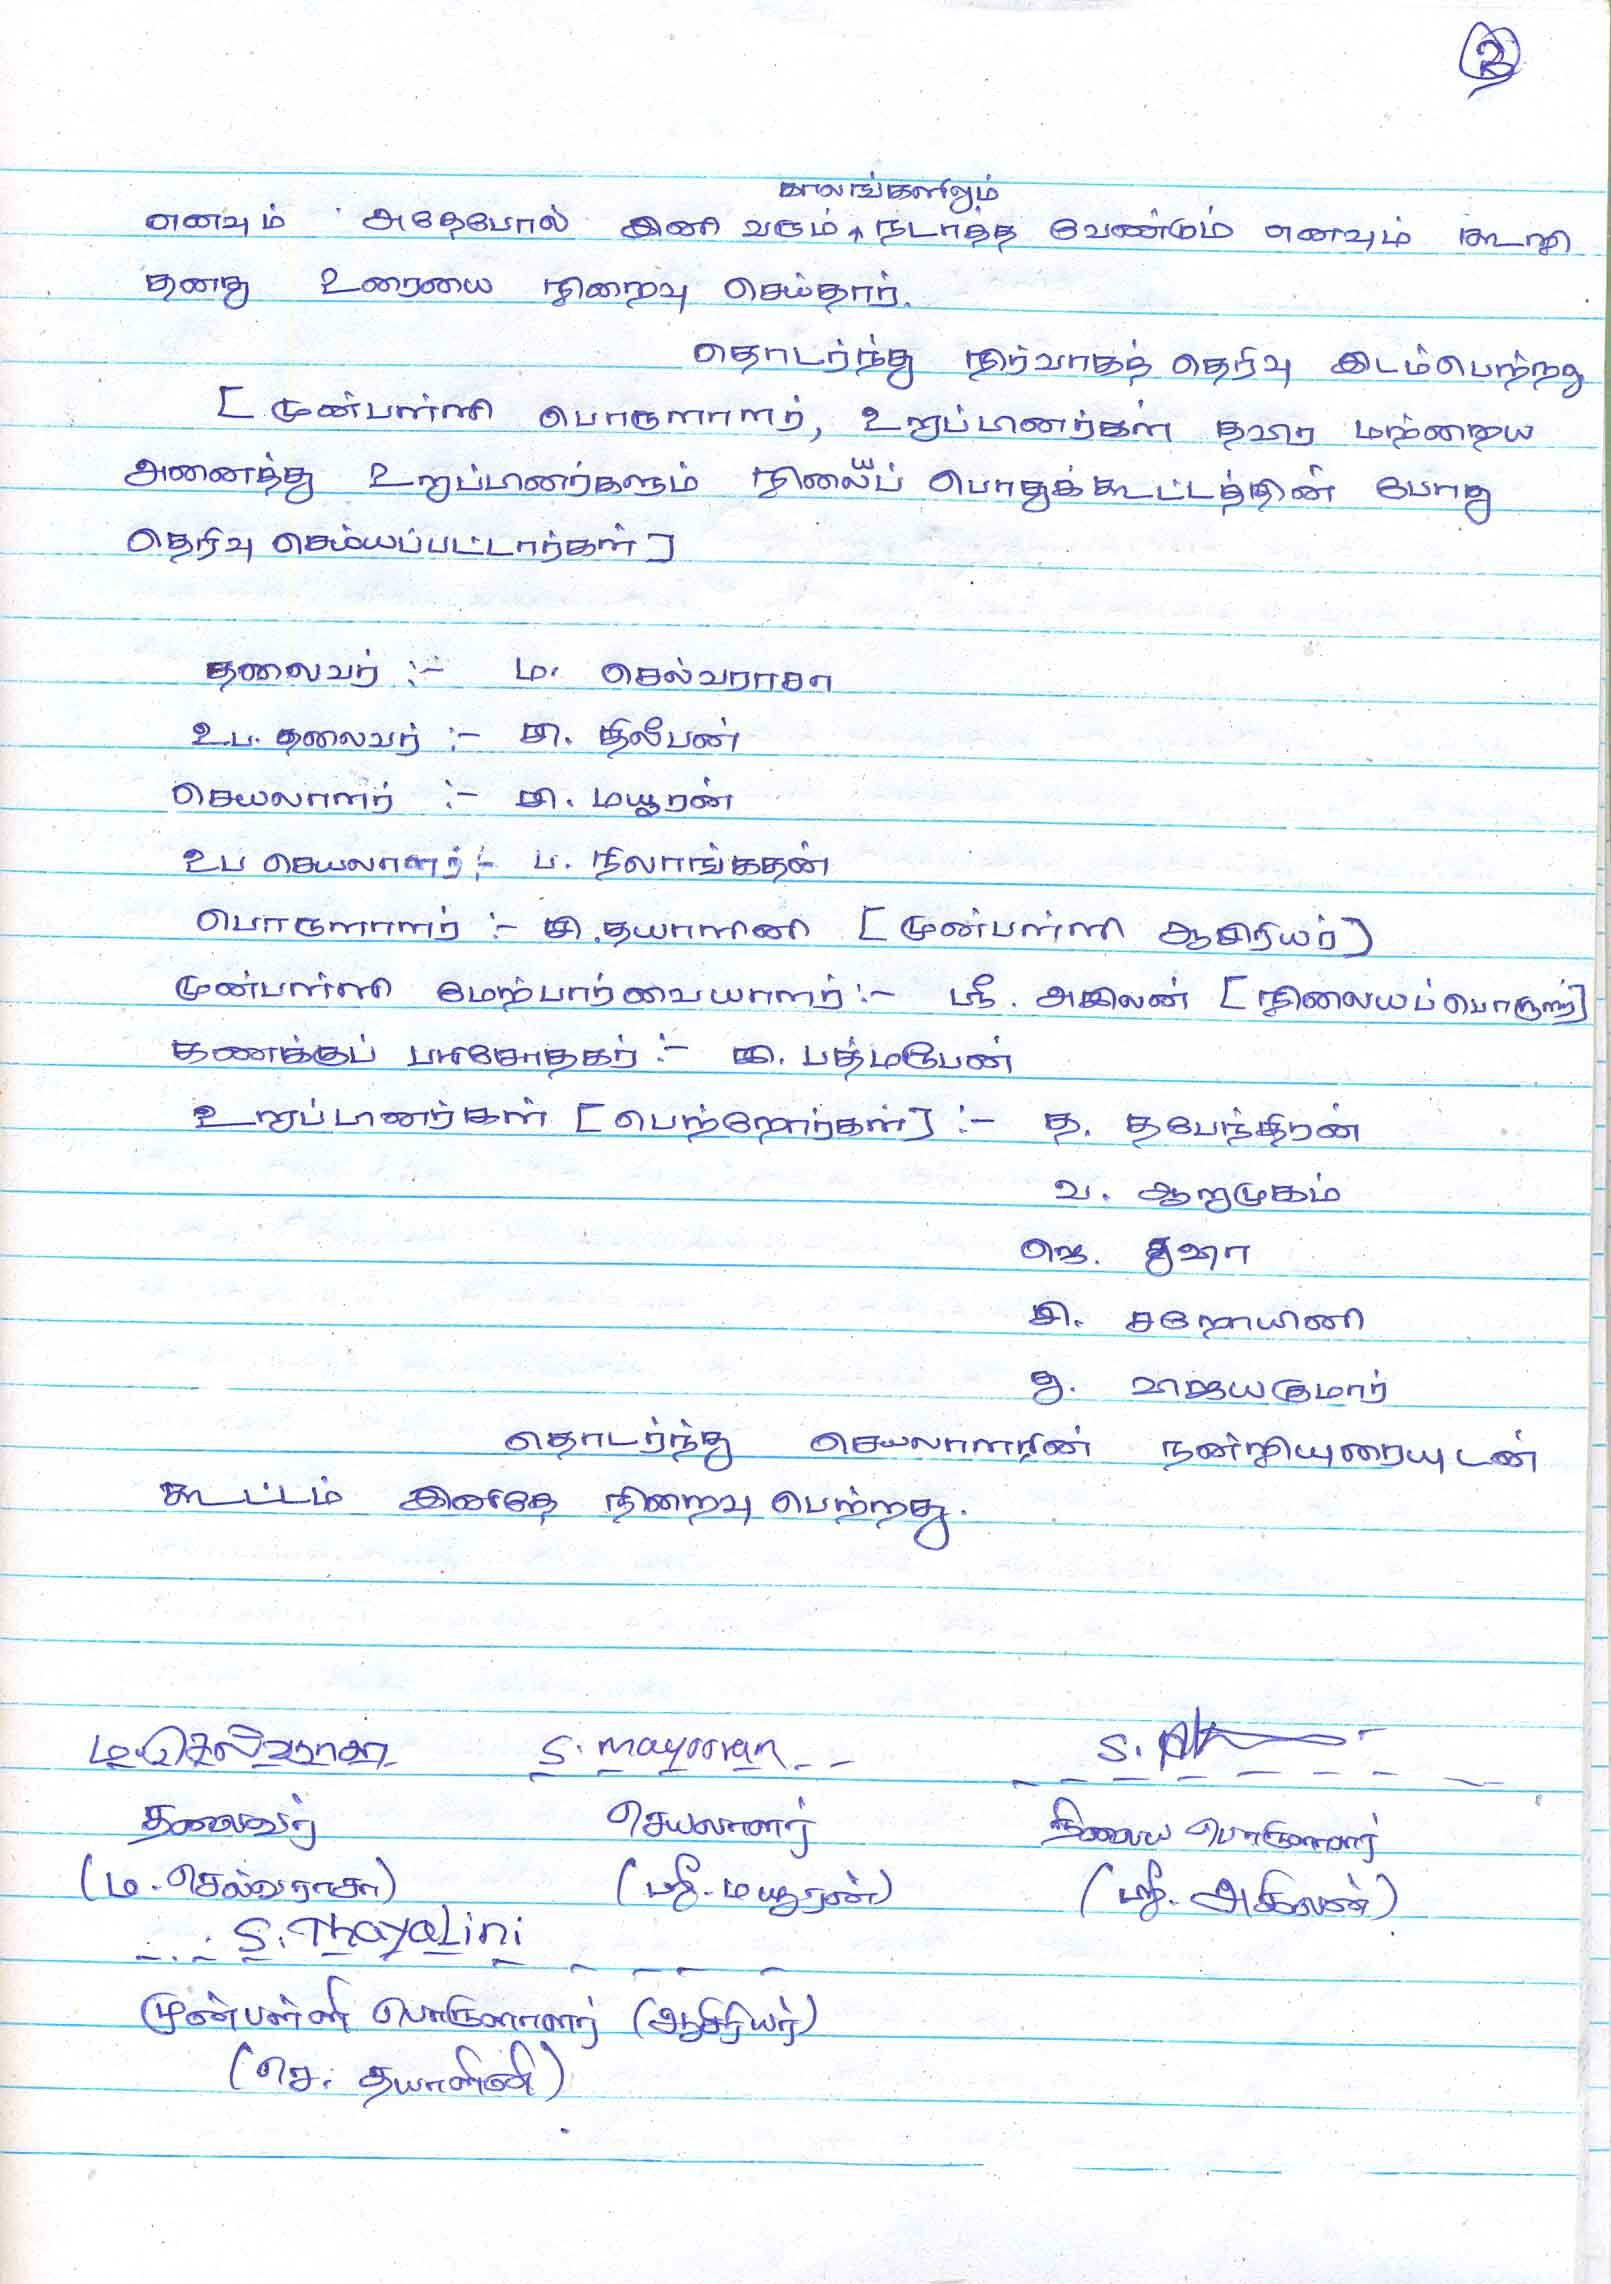 2
காலங்களிலும்
எனவும் அதேபோல் இனி வரும் ^ நடாத்த வேண்டும் எனவும் கூறி
தனது உரையை நிறைவு செய்தார்.
தொடர்ந்து நிர்வாகத் தெரிவு இடம்பெற்றது
[முன்பள்ளி பொருளாளர், உறுப்பினர்கள் தவிர மற்றைய
அனைத்து உறுப்பினர்களும் நிலையப் பொதுக்கூட்டத்தின் போது
தெரிவு செய்யப்பட்டார்கள்]
தலைவர் :- ம. செல்வராசா
உப. தலைவர் :- சி. திலீபன்
செயலாளர் :- சி. மயூரன்
உப செயலாளர் :- ப. நிலாங்கதன்
பொருளாளர் :- சி. தயாளினி [முன்பள்ளி ஆசிரியர்]
முன்பள்ளி மேற்பார்வையாளர் :- ஸ்ரீ. அகிலன் [நிலையப்பொருளர்]
கணக்குப் பரிசோதகர் :- சி. பத்மரூபன்
உறுப்பினர்கள் [பெற்றோர்கள்] :- த. தபேந்திரன்
வ. ஆறுமுகம்
ஜெ. துஷா
சி. சறோயினி
து. விஜயகுமார்
தொடர்ந்து செயலாளரின் நன்றியுரையுடன்
கூட்டம் இனிதே நிறைவு பெற்றது.
ம.செல்வராசா S. mayooran S.
தலைவர் செயலாளர் நிலைய பொருளாளர்
(ம. செல்வராசா) (ஸ்ரீ. மயூரன்) (ஸ்ரீ. அகிலன்)
S. Thayalini
முன்பள்ளி பொருளாளர் (ஆசிரியர்)
(செ. தயாளினி)